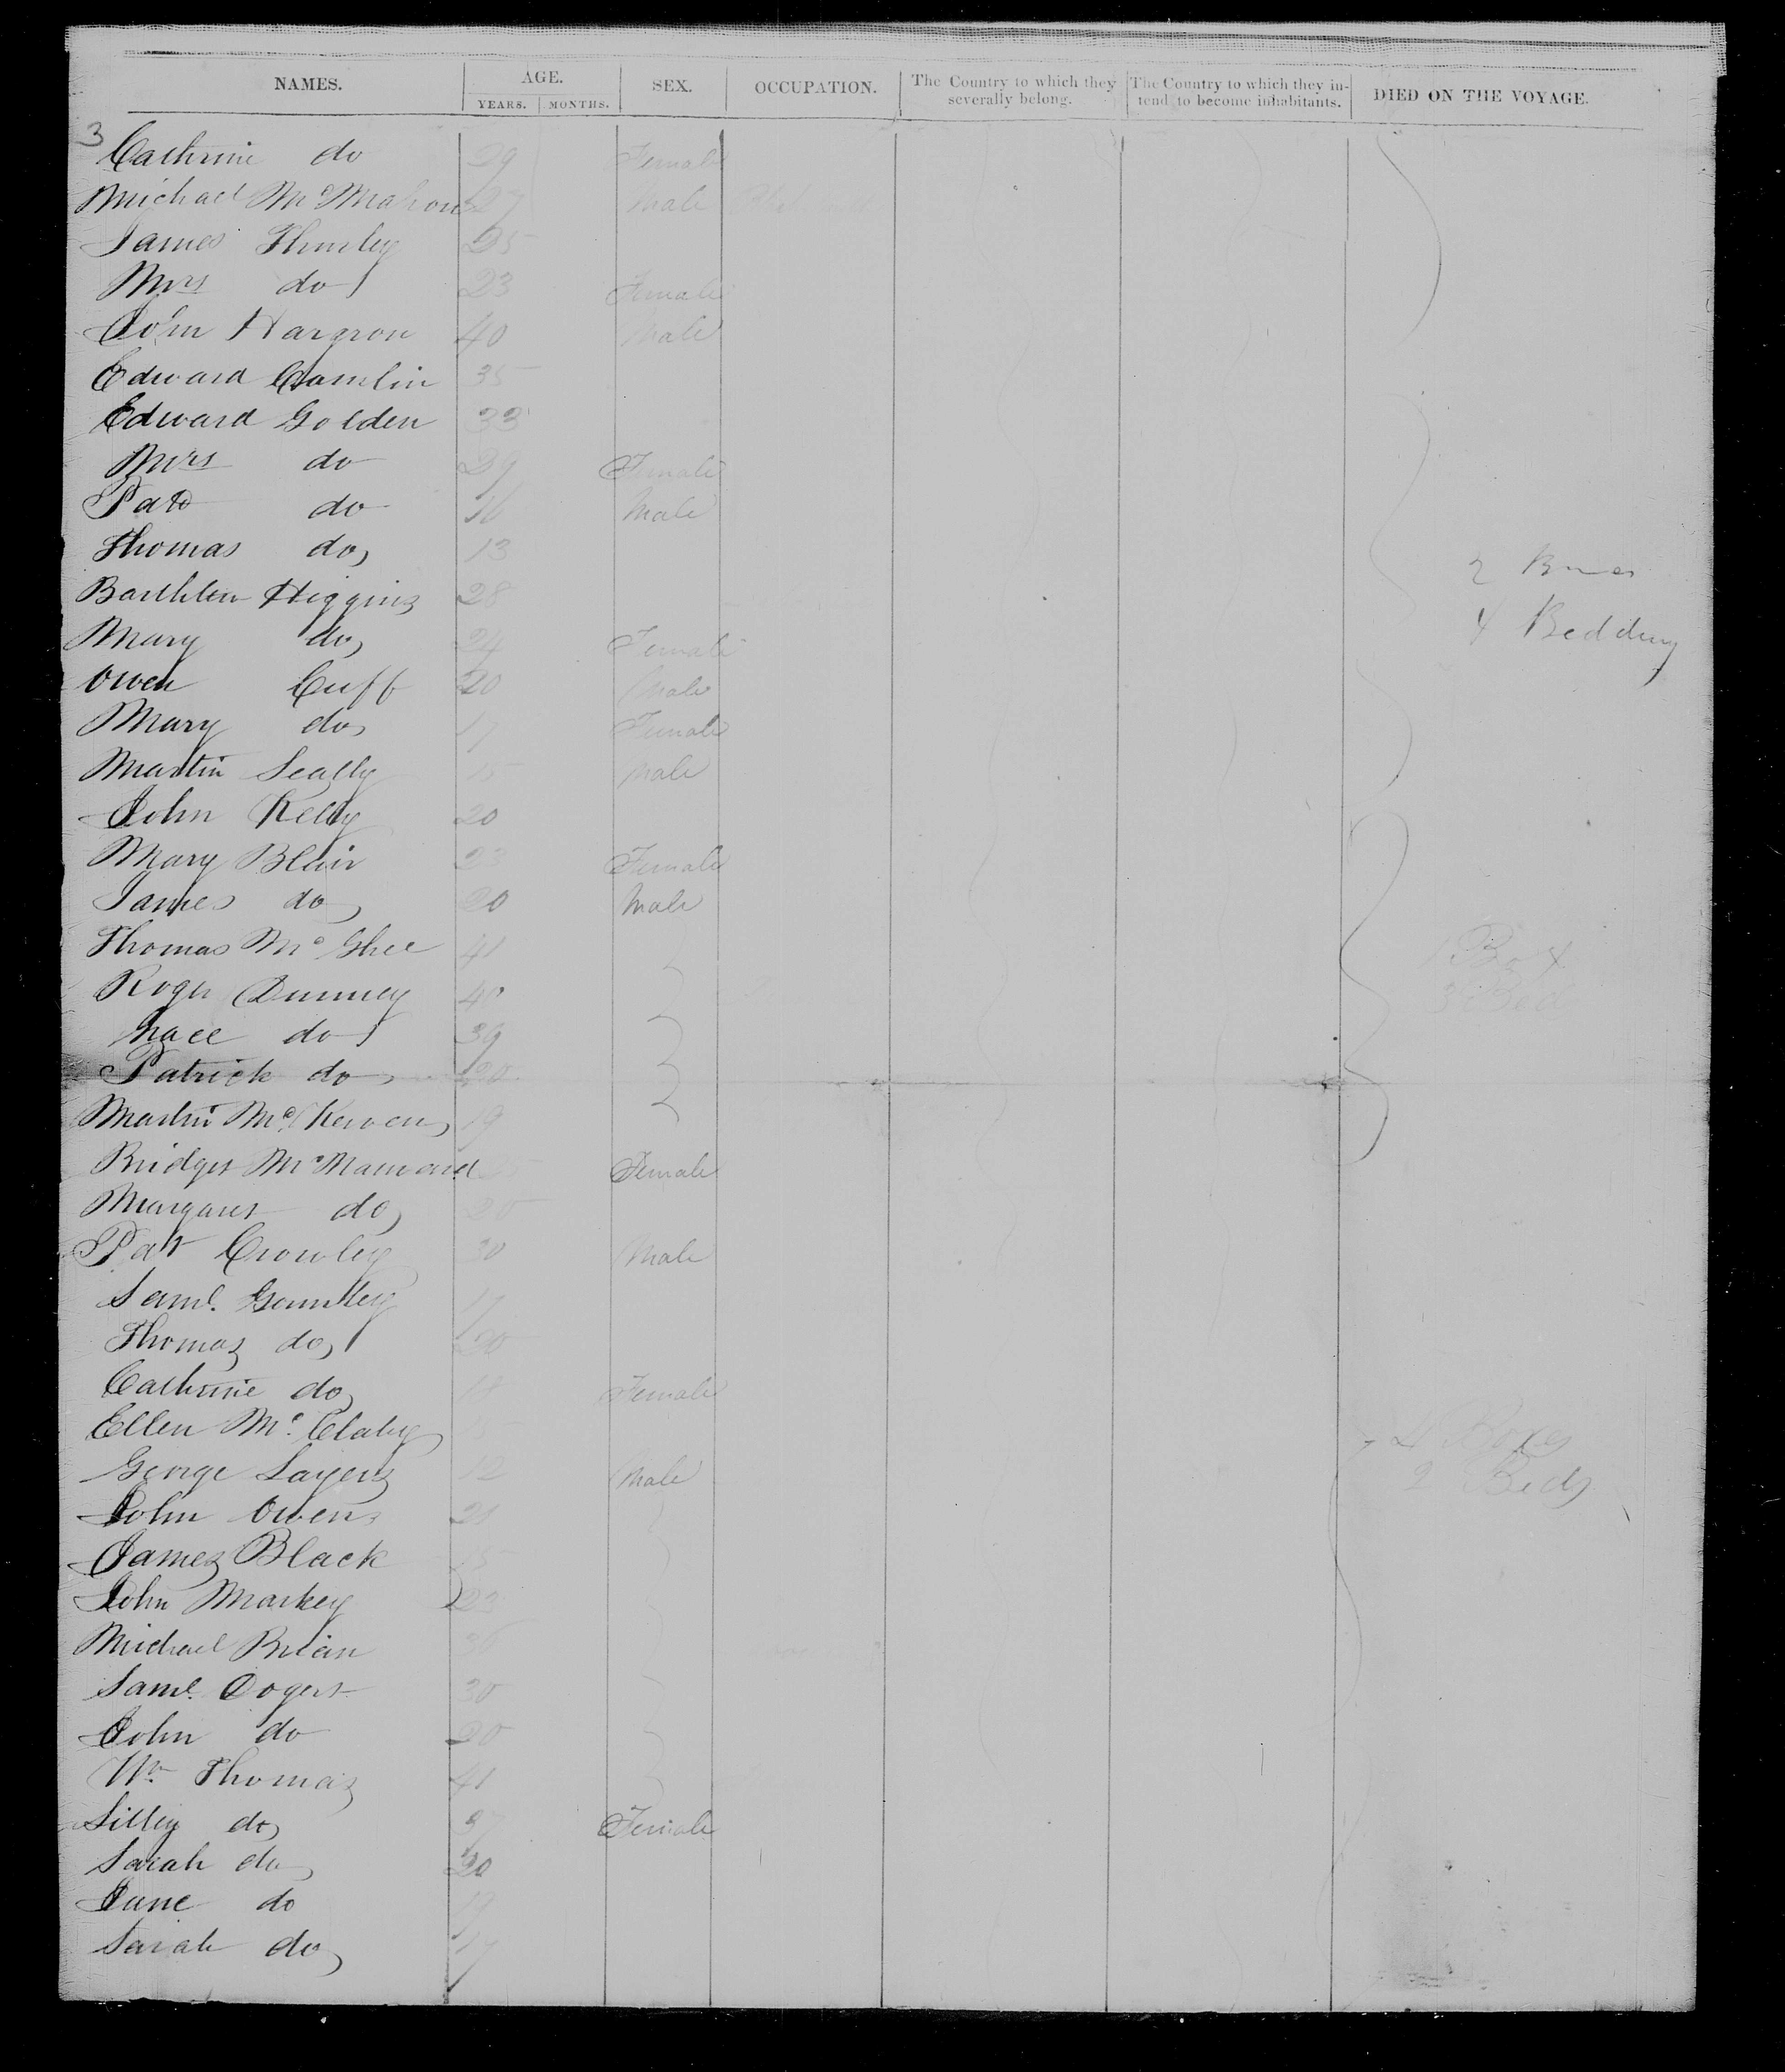 NAMES. AGE. SEX. OCCUPATION. The Country to which they severally belong. The Country to which they intend to become inhabitants. DIED ON THE VOYAGE.
YEARS. MONTHS.
3
Cathrine do 29 Female
Michael Mc Mahon 27 Male
James 25
Mrs do 23 Female
John Hargron 40 Male
Edward Comlin 35
Edward Golden 33
Mrs do 39 Female
Patk do 16 Male
Thomas do 13
Barthlem Higgins 28
2
Mary do 24 Female
4 Bedding
Owen Cuff 20 Male
Mary do 17 Female
Martin Scally 15 Male
John Kelly 20
Mary Blair 23 Female
James do 20 Male
Thomas Mc Ghee 41
1 Box
Roger Dunney 40
3 Bed
do 39
Patrick do 20
Martin Mc Kerven 19
Bridget Mc Manard Female
Margaret do 20
Pat Crowley 30 Male
Saml. Gauntley 17
Thomas do 20
Cathrine do 18 Female
Ellen Mc Claby
George Layers 12 Male
2 Beds
John Owens 21
James Black
John Markey 22
Michael Brian 36
Saml. Dogert 30
John do 20
Wm Thomas 41
Lilley do 37 Female
Sarah do 20
Jane do
Sarah do 17